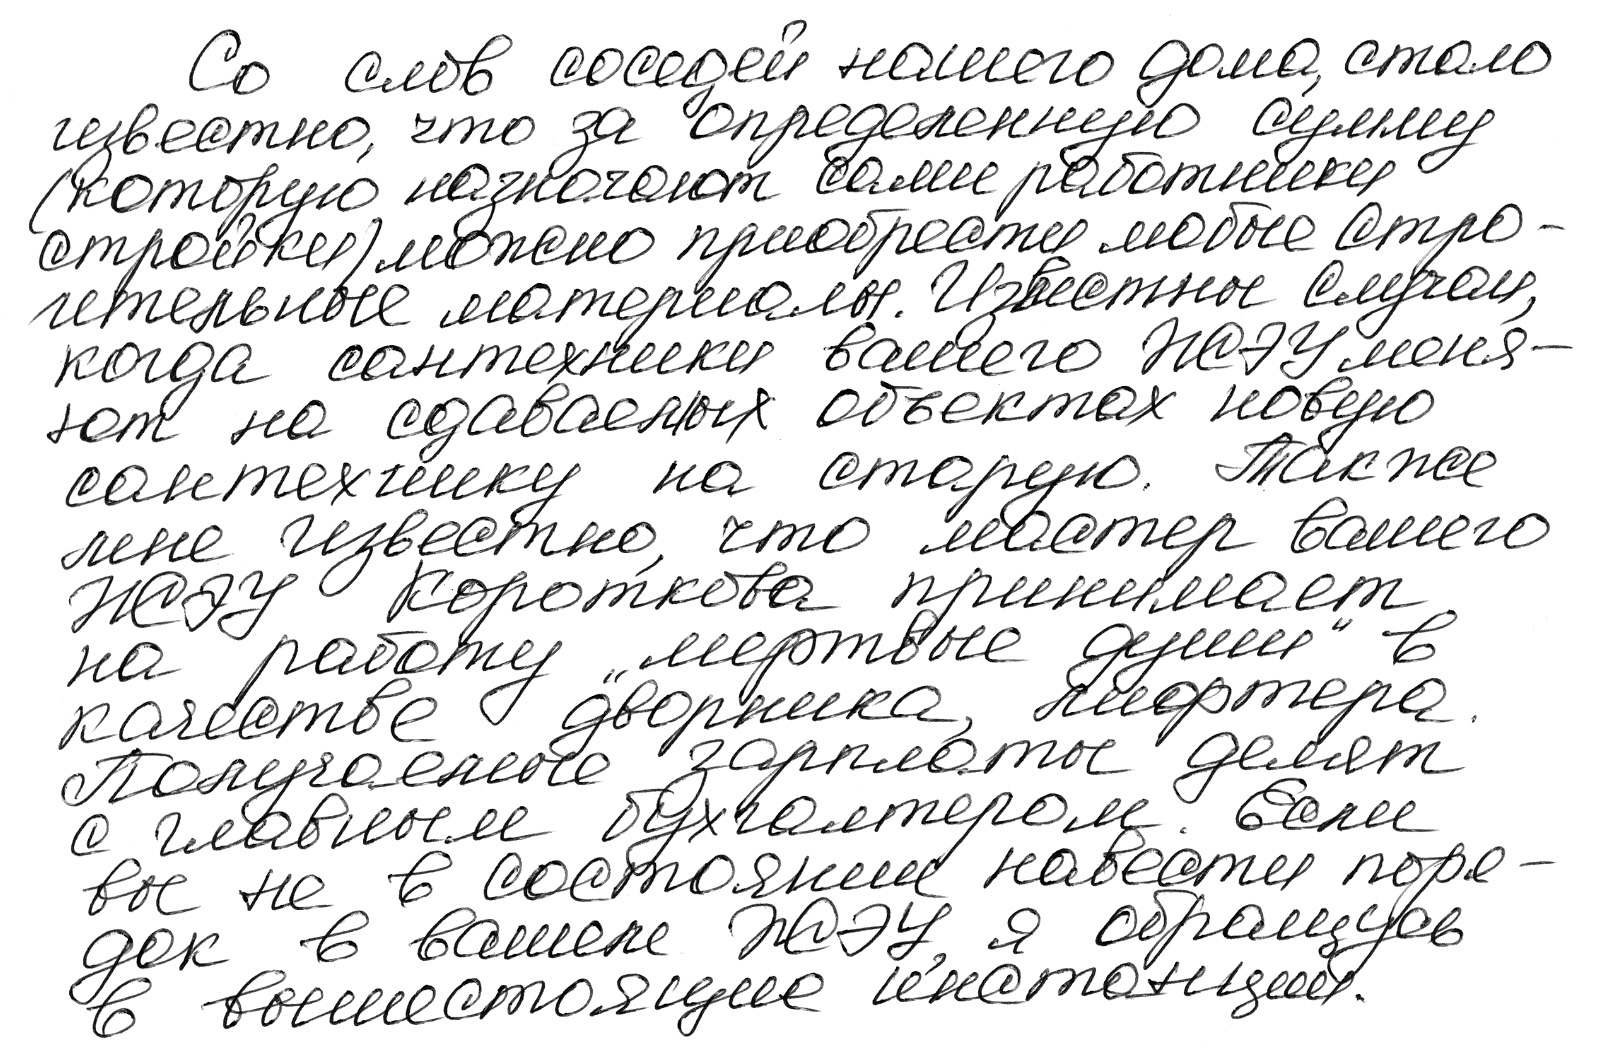 Со слов соседей нашего дома, стало
известно, что за определенную сумму
(которую назначают сами работники
стройки) можно приобрести любые стро-
ительные материалы. Известны случаи,
когда сантехники вашего ЖСЭУ меня-
ют на сдаваемых объектах новую
сантехнику на старую. Также
мне известно, что мастер вашего
ЖСЭУ Короткова принимает
на работу „мертвые души“ в
качестве дворника, лифтера.
Получаемые зарплаты делят
с главным бухгалтером. Если
вы не в состоянии навести поря-
док в вашем ЖСЭУ, я обращусь
в вышестоящие инстанции.